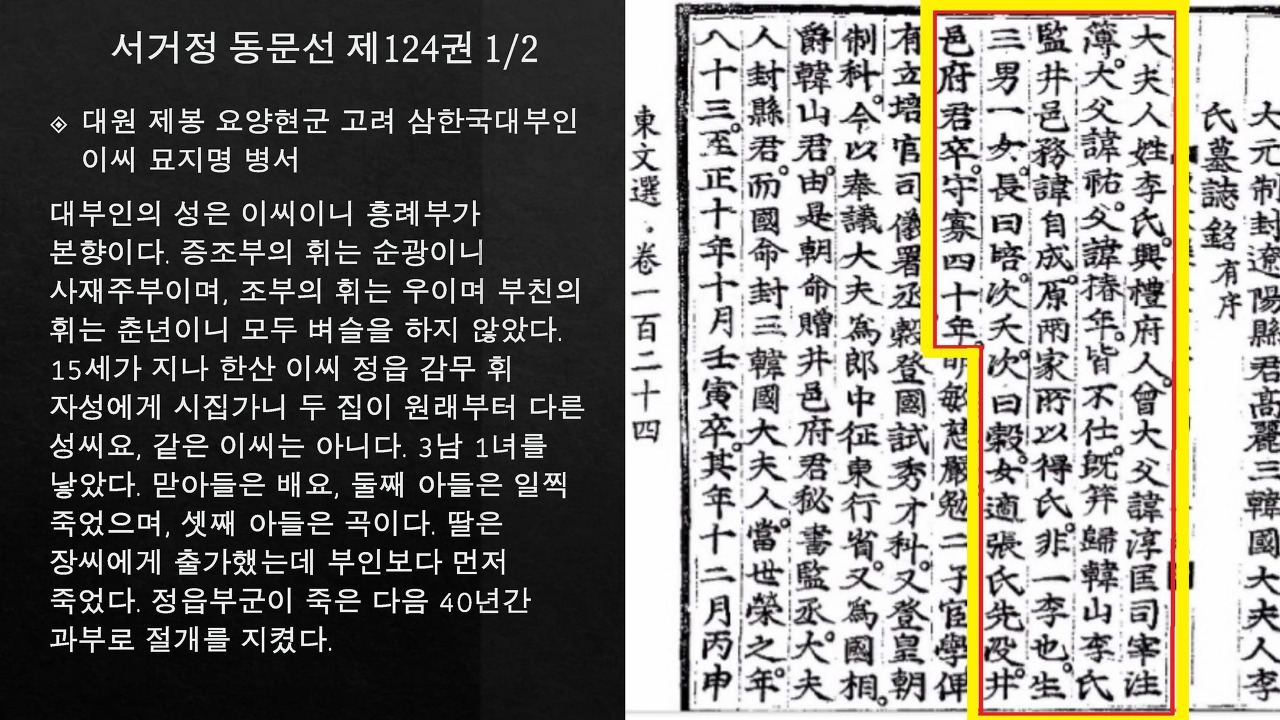 서거정 동문선 제124권 1/2
대원 제봉 요양현군 고려 삼한국대부인
이씨 묘지명 병서
대부인의 성은 이씨이니 흥례부가
본향이다. 증조부의 휘는 순광이니
사재주부이며, 조부의 휘는 우이며 부친의
휘는 춘년이니 모두 벼슬을 하지 않았다.
15세가 지나 한산 이씨 정읍 감무 휘
자성에게 시집가니 두 집이 원래부터 다른
성씨요, 같은 이씨는 아니다. 3남 1녀를
낳았다. 맏아들은 배요, 둘째 아들은 일찍
죽었으며, 셋째 아들은 곡이다. 딸은
장씨에게 출가했는데 부인보다 먼저
죽었다. 정읍부군이 죽은 다음 40년간
과부로 절개를 지켰다.
大元制封遼陽縣君髙麗三韓國大夫人李
氏墓誌銘 有序
大夫人姓李氏。興禮府人。曾大父諱淳匡司宰注
簿。大父諱祐。父諱椿年。皆不仕。旣笄歸韓山李氏
監井邑務諱自成。原兩家所以得氏。非一李也。生
三男一女。長曰培。次夭。次曰穀。女適張氏先歿。井
邑府君卒。守寡四十年。明敏慈嚴。勉二子宦學俾
有立。培官司儀署丞。穀登國試秀才科。又登皇朝
制科。今以奉議大夫爲郎中征東行省。又爲國相。
爵韓山君。由是朝命贈井邑府君秘書監丞。大夫
人封縣君。而國命封三韓國大夫人。當世榮之。年
八十三。至正十年十月壬寅卒。其年十二月丙申
東文選 · 卷一百二十四